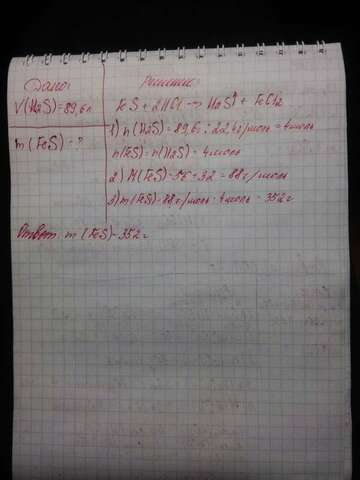 Дано:
V(H2S)=89,6л
m(FeS)-?
Решение:
FeS + 2HCl → H2S↑ + FeCl2
1) n(H2S)=89,6 : 22,4л/моль = 4моль
n(FeS)=n(H2S)=4моль
2) M(FeS)=56+32=88г/моль
3) m(FeS)=88г/моль · 4моль = 352г
Ответ: m(FeS)=352г